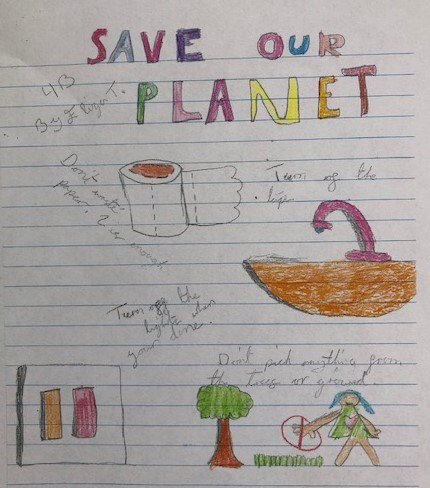 SAVE OUR
PLANET
4B
By T.
Don't
paper. 2 is enough
Turn of the
tap.
Turn off the
lights
your done.
Don't pick anything from
the trees or ground